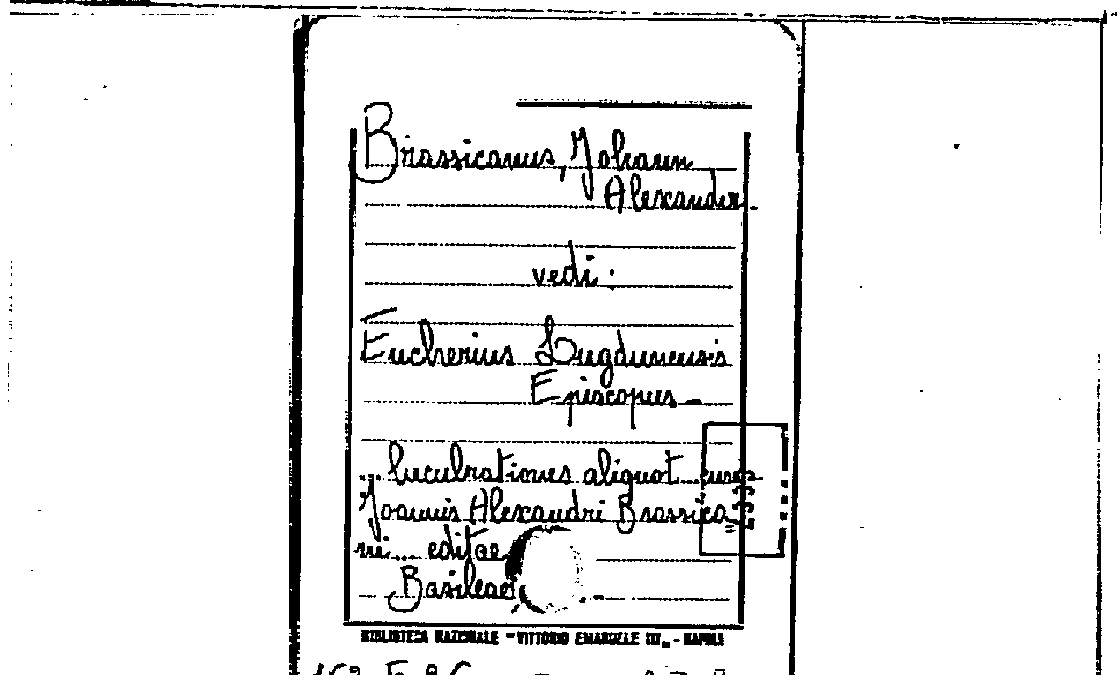 Brassicanus, Johann
Alexander.
vedi:
Eucherius Lugdunensis
Episcopus -
... lucubrationes aliquot... cura
Joannis Alexandri Brassica
ni... editae
Basileae
BIBLIOTECA NAZIONALE "VITTORIO EMANUELE III„ - NAPOLI